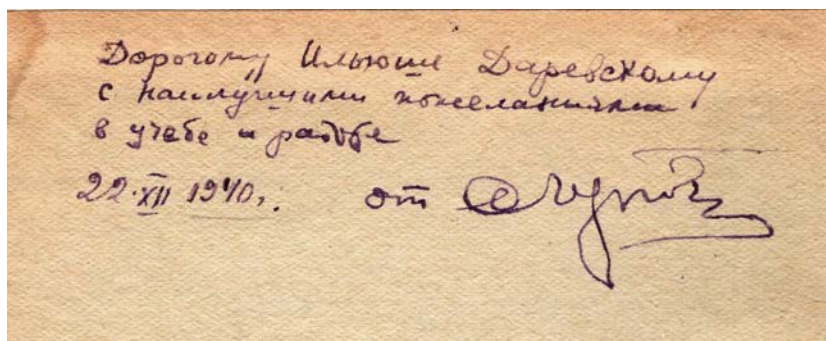 Дорогому Ильюше Даревскому
с наилучшими пожеланиями
в учебе и работе
22·XII 1940г. от